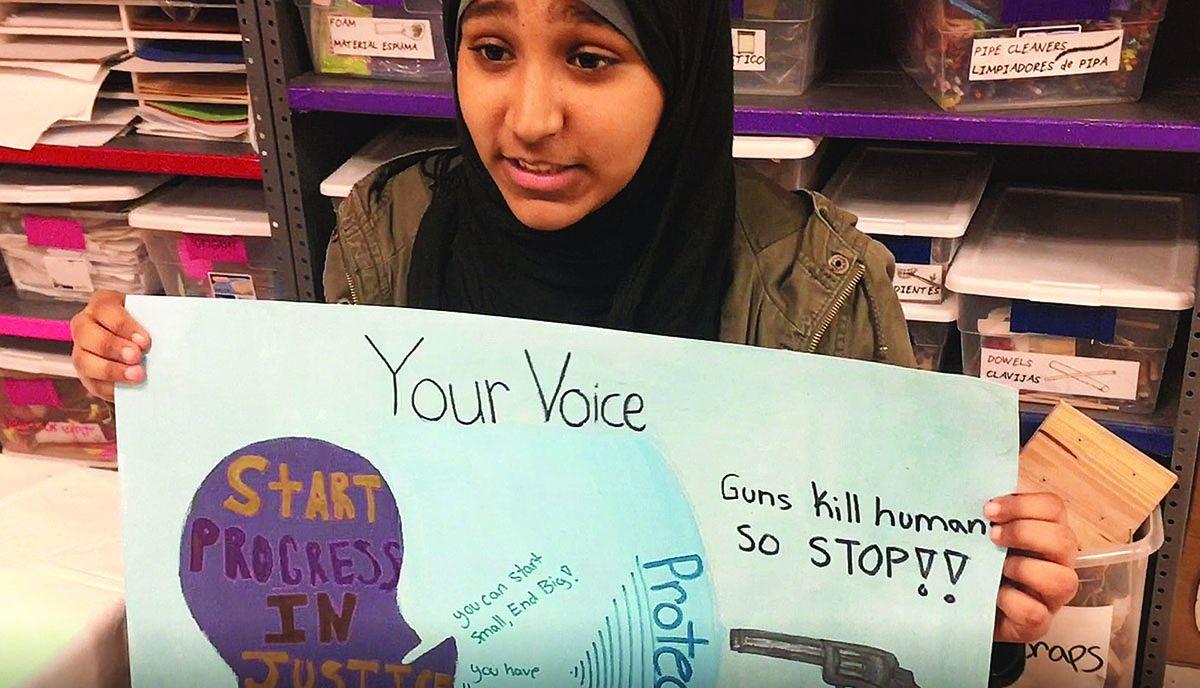 FOAM
MATERIAL ESPUMA
TICO
PIPE CLEANERS
LIMPIADORES de PIPA
DIENTES
DOWELS
CLAVIJAS
Your Voice
START
PROGRESS
IN
JUSTICE
you can start
small, End Big!
you have
Protec
Guns kill human
SO STOP!!
craps